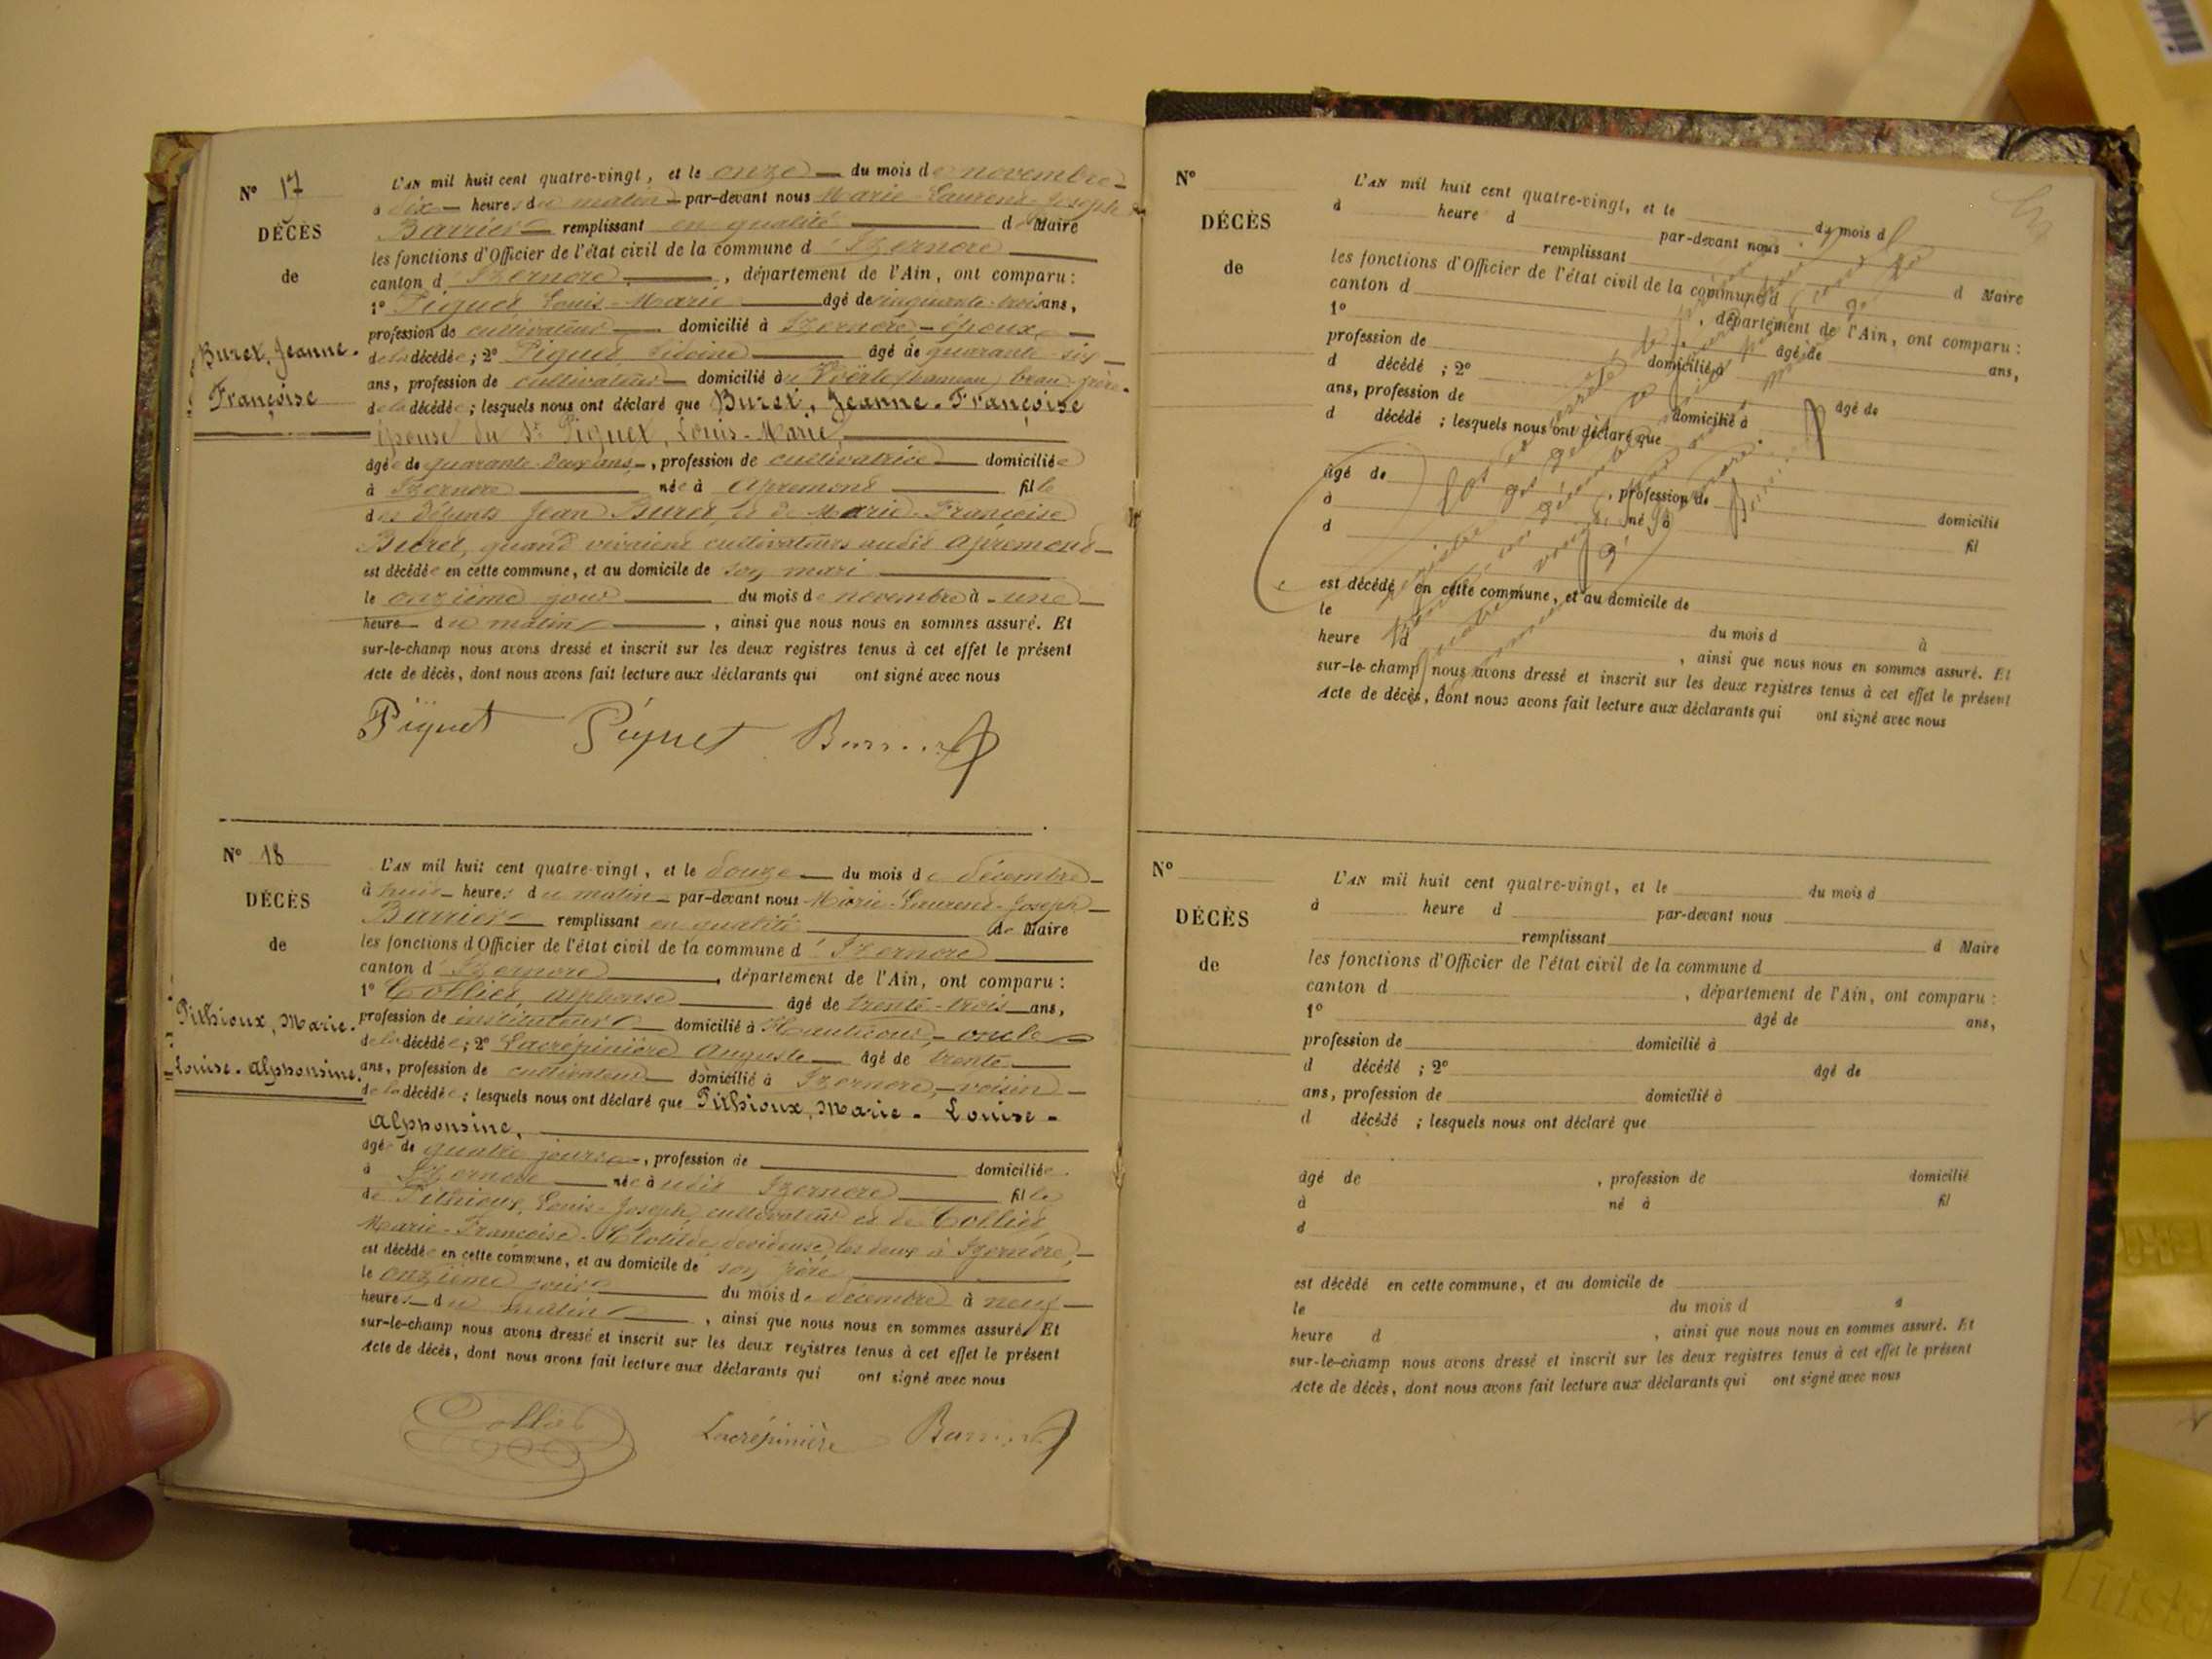 N° 17
DÉCÈS
de
Buret, Jeanne-
Françoise
L'AN mil huit cent quatre-vingt, et le onze du mois de novembre
à dix heures du matin par-devant nous Marie-Laurent-Joseph
Barrier remplissant en qualité de Maire
les fonctions d'Officier de l'état civil de la commune d'Izernore
canton d'Izernore, département de l'Ain, ont comparu :
1° Piquet Louis-Marie âgé de cinquante-trois ans,
profession de cultivateur domicilié à Izernore, époux
de la décédée ; 2° Piquet Sidoine âgé de quarante-six
ans, profession de cultivateur domicilié à (hameau) beau-frère
de la décédée ; lesquels nous ont déclaré que Buret, Jeanne-Françoise
épouse du Sr Piquet, Louis-Marie,
âgée de quarante-deux ans, profession de cultivatrice domiciliée
à Izernore née à Apremont fille
des défunts Jean Buret, et de Marie-Françoise
Buret, quand vivaient cultivateurs audit Apremont
est décédée en cette commune, et au domicile de son mari
le onzième jour du mois de novembre à une
heure du matin, ainsi que nous nous en sommes assuré. Et
sur-le-champ nous avons dressé et inscrit sur les deux registres tenus à cet effet le présent
Acte de décès, dont nous avons fait lecture aux déclarants qui ont signé avec nous
Piquet Piquet Barrier
N° 18
DÉCÈS
de
Pithioux, Marie-
Louise-Alphonsine
L'AN mil huit cent quatre-vingt, et le douze du mois de décembre
à huit heures du matin par-devant nous Marie-Laurent-Joseph
Barrier remplissant en qualité de Maire
les fonctions d'Officier de l'état civil de la commune d'Izernore
canton d'Izernore, département de l'Ain, ont comparu :
1° Collier, Alphonse âgé de trente-trois ans,
profession de instituteur domicilié à oncle
de la décédée ; 2° Lacrépinière Auguste âgé de trente
ans, profession de cultivateur domicilié à Izernore, voisin
de la décédée ; lesquels nous ont déclaré que Pithioux, Marie-Louise-
Alphonsine,
âgée de quatre jours, profession de domiciliée
à Izernore née audit Izernore fille
de Pithioux, Louis-Joseph, cultivateur et de Collier
Marie-Françoise-Clotilde, dévideuse, les deux à Izernore,
est décédée en cette commune, et au domicile de son père
le onzième jour du mois de décembre à neuf
heures du matin, ainsi que nous nous en sommes assuré. Et
sur-le-champ nous avons dressé et inscrit sur les deux registres tenus à cet effet le présent
Acte de décès, dont nous avons fait lecture aux déclarants qui ont signé avec nous
Collier Lacrépinière Barrier
N°
DÉCÈS
de
L'AN mil huit cent quatre-vingt, et le du mois d
à heure d par-devant nous
remplissant d Maire
les fonctions d'Officier de l'état civil de la commune d
canton d , département de l'Ain, ont comparu :
1° âgé de ans,
profession de domicilié à
d décédé ; 2° âgé de
ans, profession de domicilié à
d décédé ; lesquels nous ont déclaré que
âgé de , profession de domicilié
à né à fil
d
est décédé en cette commune, et au domicile de
le du mois d à
heure d , ainsi que nous nous en sommes assuré. Et
sur-le-champ nous avons dressé et inscrit sur les deux registres tenus à cet effet le présent
Acte de décès, dont nous avons fait lecture aux déclarants qui ont signé avec nous
N°
DÉCÈS
de
L'AN mil huit cent quatre-vingt, et le du mois d
à heure d par-devant nous
remplissant d Maire
les fonctions d'Officier de l'état civil de la commune d
canton d , département de l'Ain, ont comparu :
1° âgé de ans,
profession de domicilié à
d décédé ; 2° âgé de
ans, profession de domicilié à
d décédé ; lesquels nous ont déclaré que
âgé de , profession de domicilié
à né à fil
d
est décédé en cette commune, et au domicile de
le du mois d à
heure d , ainsi que nous nous en sommes assuré. Et
sur-le-champ nous avons dressé et inscrit sur les deux registres tenus à cet effet le présent
Acte de décès, dont nous avons fait lecture aux déclarants qui ont signé avec nous